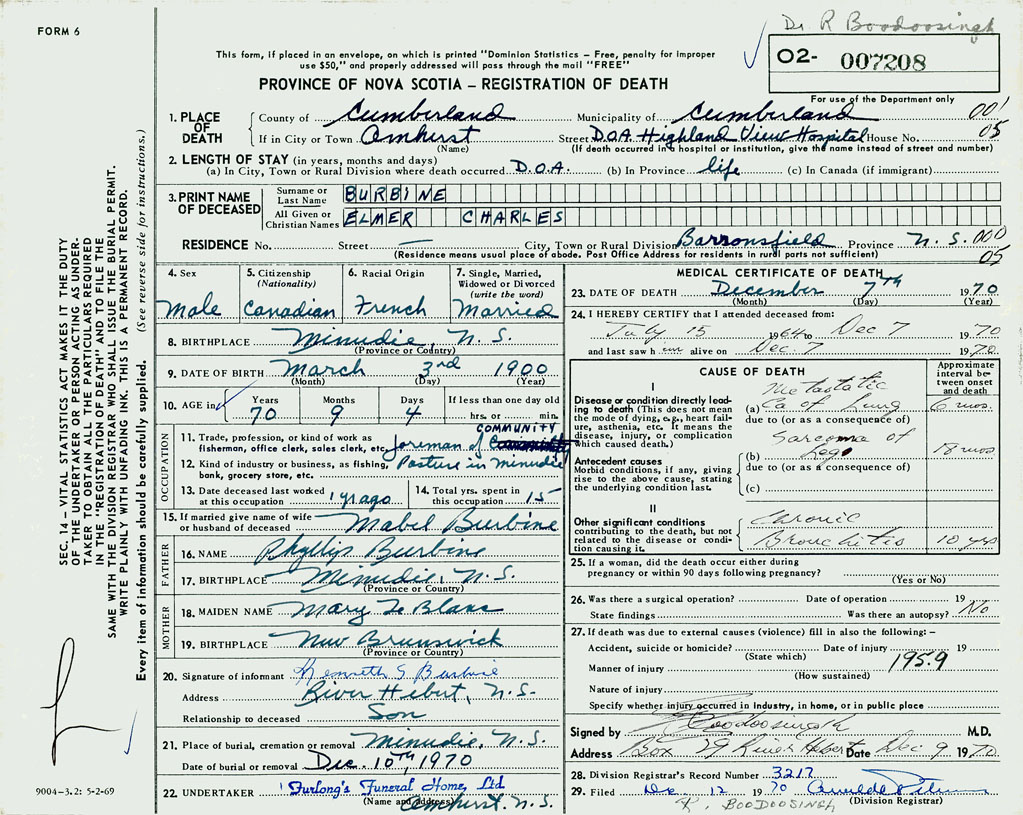 FORM 6
Dr R Boodoosingh
This form, if placed in an envelope, on which is printed "Dominion Statistics – Free, penalty for improper
use $50," and properly addressed will pass through the mail "FREE"
O2- 007208
PROVINCE OF NOVA SCOTIA – REGISTRATION OF DEATH
For use of the Department only
1. PLACE OF DEATH
County of Cumberland Municipality of Cumberland 001
If in City or Town Amherst Street D.O.A. Highland View Hospital House No. 05
(Name) (If death occurred in hospital or institution, give the name instead of street and number)
2. LENGTH OF STAY (in years, months and days)
(a) In City, Town or Rural Division where death occurred D.O.A. (b) In Province life (c) In Canada (if immigrant)
3. PRINT NAME OF DECEASED
Surname or Last Name BURBINE
All Given or Christian Names ELMER CHARLES
RESIDENCE No. Street — City, Town or Rural Division Barronsfield Province N.S. 000
(Residence means usual place of abode. Post Office Address for residents in rural parts not sufficient) 05
4. Sex Male
5. Citizenship (Nationality) Canadian
6. Racial Origin French
7. Single, Married, Widowed or Divorced (write the word) Married
8. BIRTHPLACE Minudie N.S.
(Province or Country)
9. DATE OF BIRTH March 3rd 1900
(Month) (Day) (Year)
10. AGE in Years 70 Months 9 Days 4 If less than one day old hrs. or min.
OCCUPATION
11. Trade, profession, or kind of work as fisherman, office clerk, sales clerk, etc. foreman of COMMUNITY
12. Kind of industry or business, as fishing, bank, grocery store, etc. Pasture in Minudie
13. Date deceased last worked at this occupation 1 yr ago
14. Total yrs. spent in this occupation 15
15. If married give name of wife or husband of deceased Mabel Burbine
FATHER
16. NAME Phyllip Burbine
17. BIRTHPLACE Minudie, N.S.
(Province or Country)
MOTHER
18. MAIDEN NAME Mary Le Blanc
19. BIRTHPLACE New Brunswick
(Province or Country)
20. Signature of informant Kenneth G Burbine
Address River Hebert, N.S.
Relationship to deceased Son
21. Place of burial, cremation or removal Minudie, N.S.
Date of burial or removal Dec. 10TH, 1970
22. UNDERTAKER Furlong's Funeral Home, Ltd.
(Name and address) Amherst, N.S.
MEDICAL CERTIFICATE OF DEATH
23. DATE OF DEATH December 7TH 1970
(Month) (Day) (Year)
24. I HEREBY CERTIFY that I attended deceased from:
July 15 1964 to Dec 7 1970
and last saw him alive on Dec. 7 1970
CAUSE OF DEATH
Approximate interval between onset and death
I
Disease or condition directly leading to death (This does not mean the mode of dying, e.g., heart failure, asthenia, etc. It means the disease, injury, or complication which caused death.)
Metastatic
(a) Ca of Lung 6 mos.
due to (or as a consequence of)
Antecedent causes
Morbid conditions, if any, giving rise to the above cause, stating the underlying condition last.
Sarcoma of
(b) Leg 18 mos
due to (or as a consequence of)
(c)
II
Other significant conditions contributing to the death, but not related to the disease or condition causing it.
Chronic
Bronchitis 10 yrs
25. If a woman, did the death occur either during pregnancy or within 90 days following pregnancy?
(Yes or No)
26. Was there a surgical operation? Date of operation 19
State findings Was there an autopsy? No
27. If death was due to external causes (violence) fill in also the following: –
Accident, suicide or homicide? Date of injury 19
(State which) 195.9
Manner of injury
(How sustained)
Nature of injury
Specify whether injury occurred in industry, in home, or in public place
Signed by Boodoosingh M.D.
Address Box 29 River Hebert Date Dec 9 1970
28. Division Registrar's Record Number 3217
29. Filed Dec. 12 1970
(Division Registrar)
R. BOODOOSINGH
SEC. 14 – VITAL STATISTICS ACT MAKES IT THE DUTY
OF THE UNDERTAKER OR PERSON ACTING AS UNDER-
TAKER TO OBTAIN ALL THE PARTICULARS REQUIRED
IN THE "REGISTRATION OF DEATH" AND TO FILE THE
SAME WITH THE DIVISION REGISTRAR WHO SHALL ISSUE THE BURIAL PERMIT.
WRITE PLAINLY WITH UNFADING INK. THIS IS A PERMANENT RECORD.
Every item of information should be carefully supplied. (See reverse side for instructions.)
9004-3.2: 5-2-69